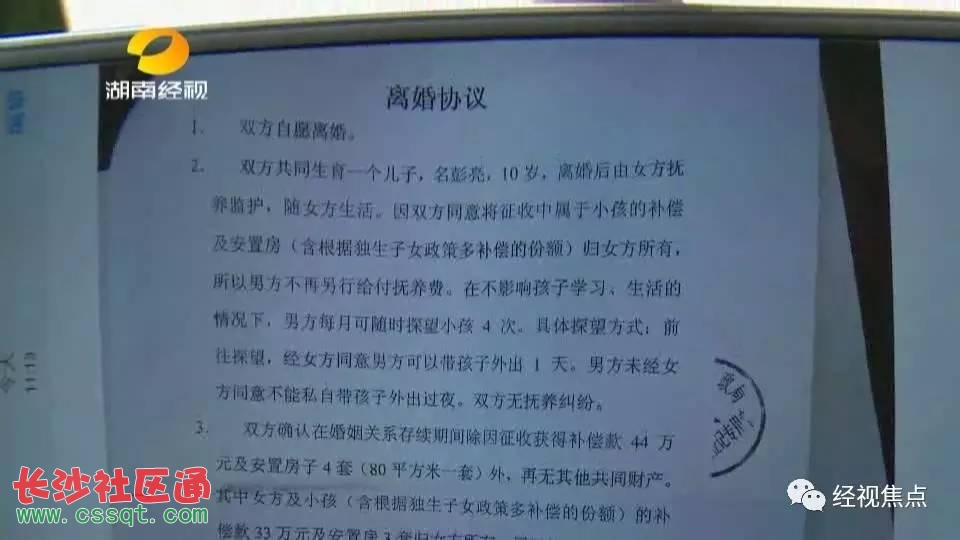 湖南经视
离婚协议
1. 双方自愿离婚。
2. 双方共同生育一个儿子，名彭亮，10 岁，离婚后由女方抚
养监护，随女方生活。因双方同意将征收中属于小孩的补偿
及安置房（含根据独生子女政策多补偿的份额）归女方所有，
所以男方不再另行给付抚养费。在不影响孩子学习、生活的
情况下，男方每月可随时探望小孩 4 次。具体探望方式：前
往探望，经女方同意男方可以带孩子外出 1 天。男方未经女
方同意不能私自带孩子外出过夜。双方无抚养纠纷。
3. 双方确认在婚姻关系存续期间除因征收获得补偿款 44 万
元及安置房子 4 套（80 平方米一套）外，再无其他共同财产。
其中女方及小孩（含根据独生子女政策多补偿的份额）的补
偿款 33 万元及安置房 3 套归女方所有，
长沙社区通
www.cssqt.com
经视焦点
11113